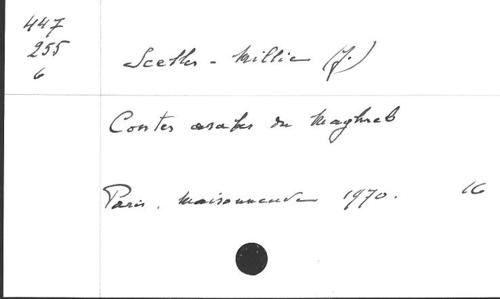 447
255
6
Scelles-Millie (J.)
Contes arabes du Maghreb
Paris, Maisonneuve 1970. 16